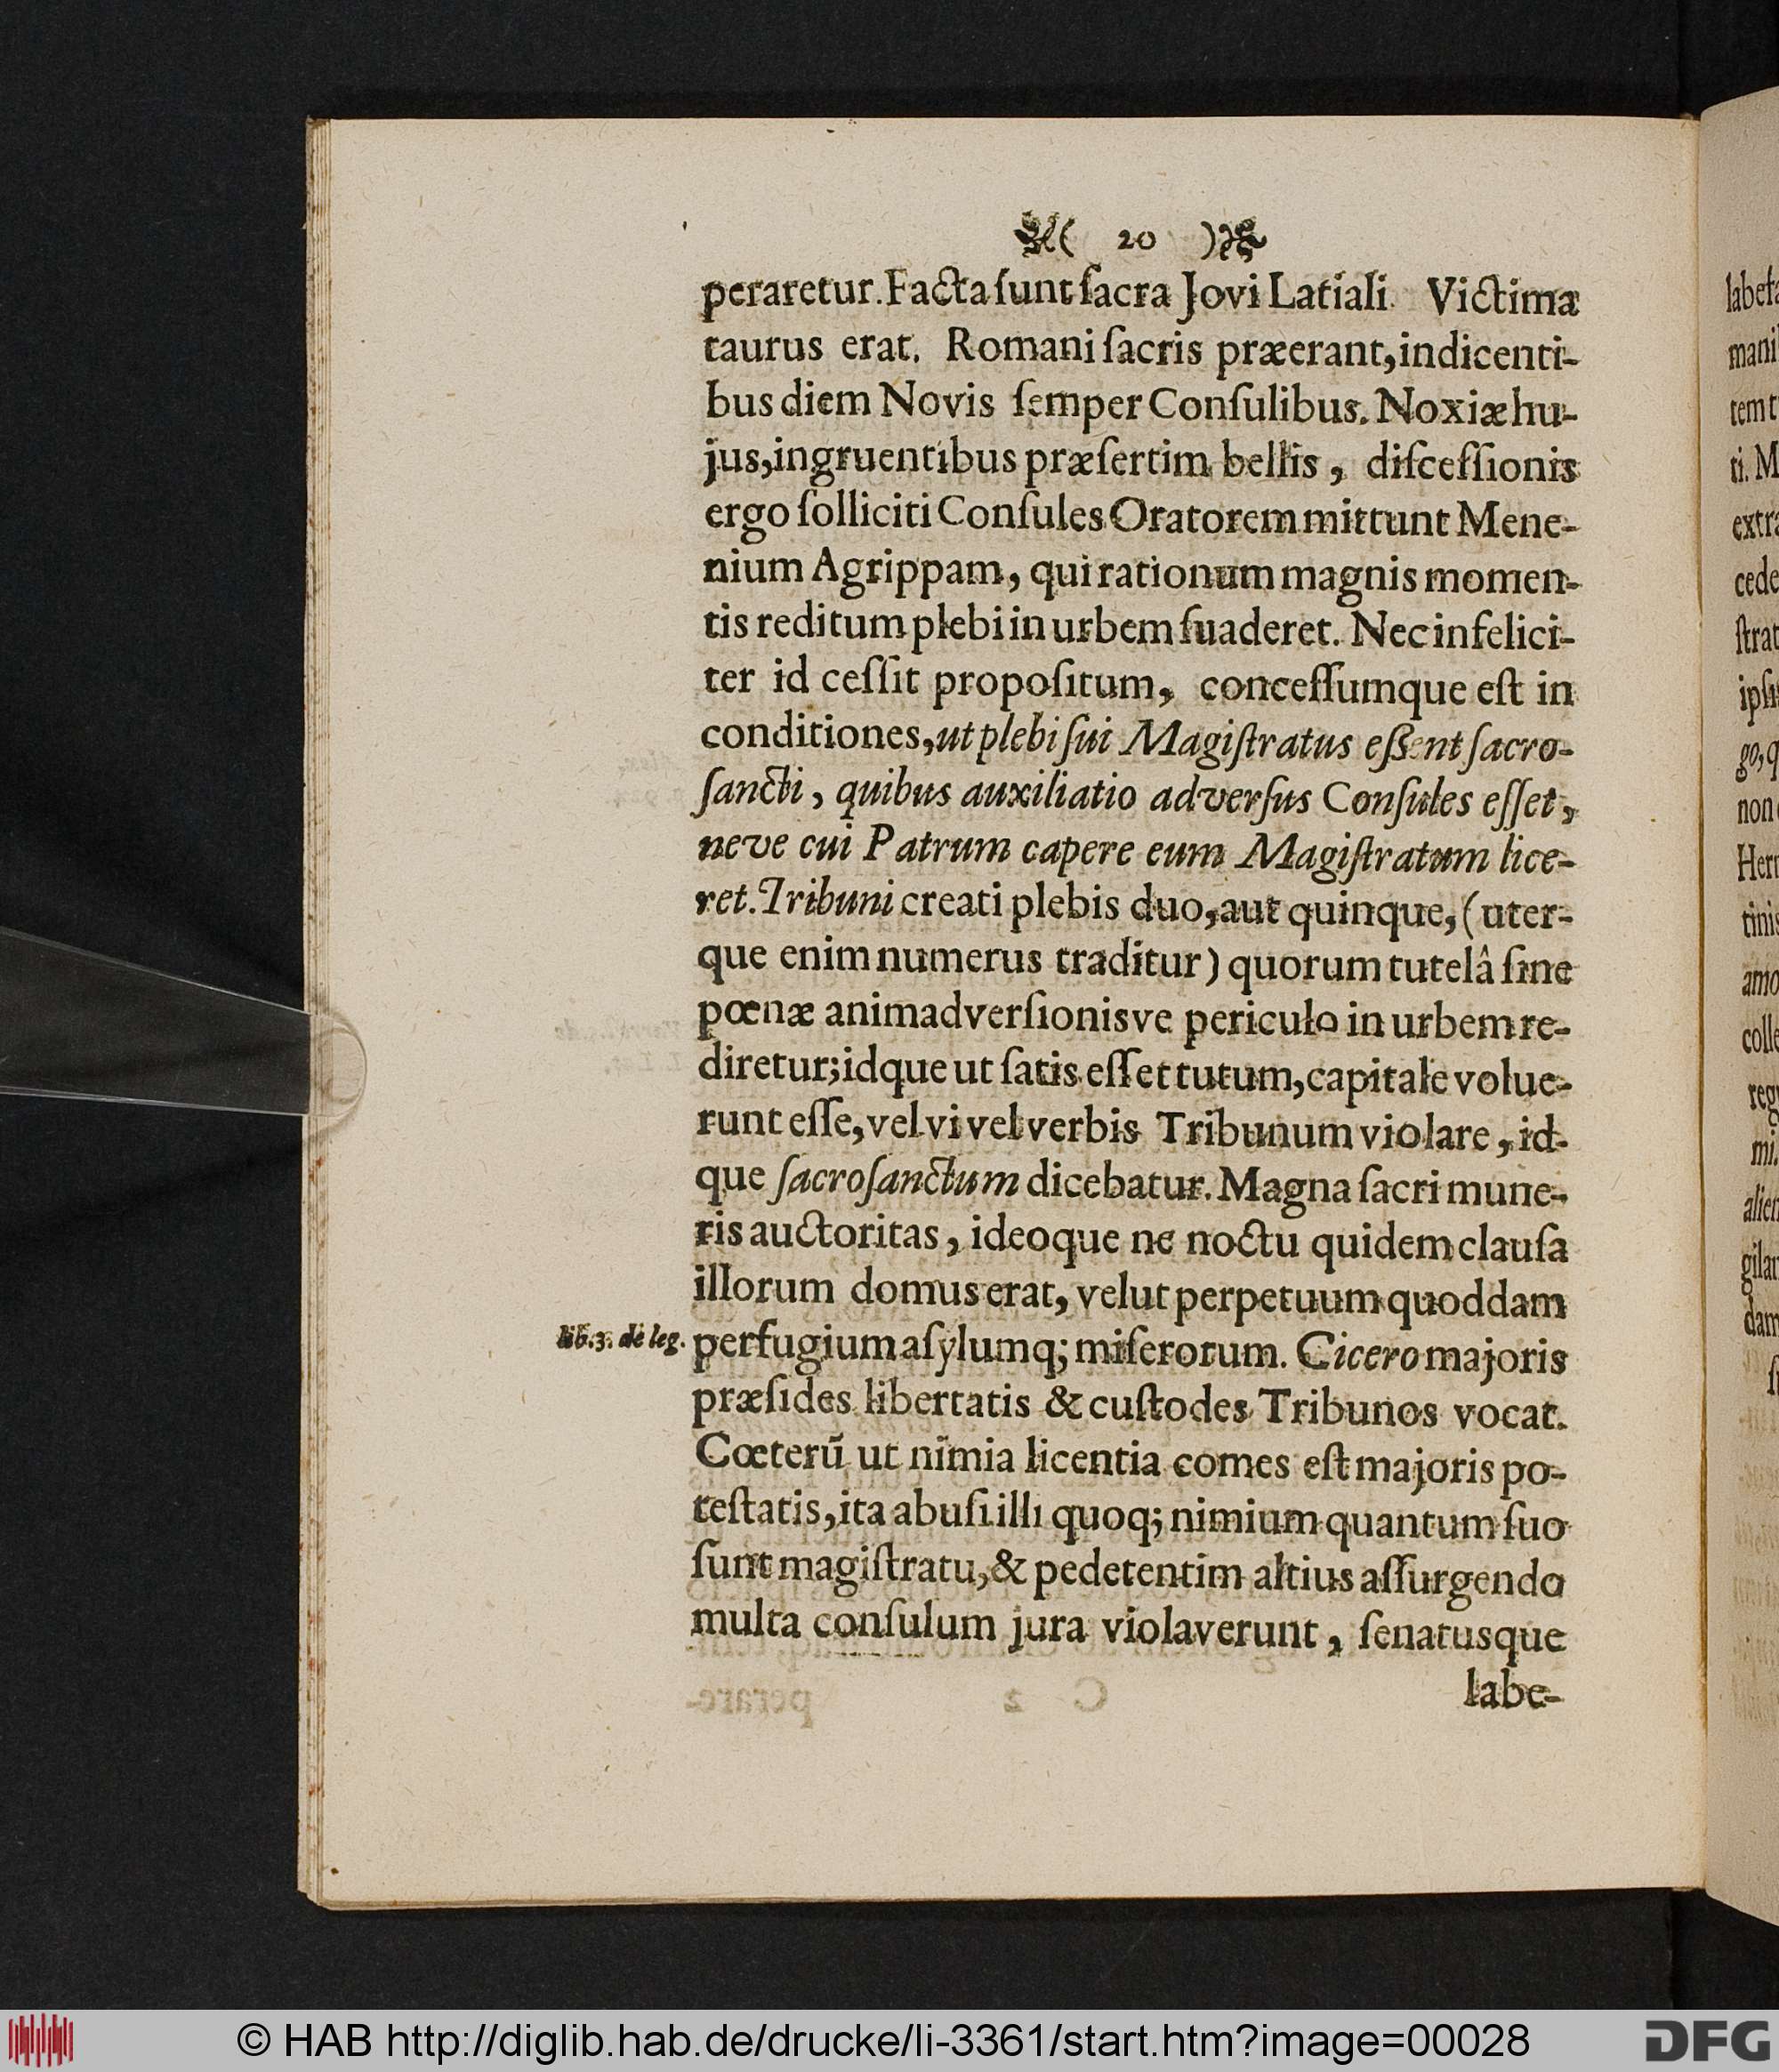 ( 20 )
peraretur. Facta ſunt ſacra Jovi Latiali. Victima
taurus erat. Romani ſacris præerant, indicenti-
bus diem Novis ſemper Conſulibus. Noxiæ hu-
jus, ingruentibus præſertim bellis, diſceſſionis
ergo ſolliciti Conſules Oratorem mittunt Mene-
nium Agrippam, qui rationum magnis momen-
tis reditum plebi in urbem ſuaderet. Nec infelici-
ter id ceſſit propoſitum, conceſſumque eſt in
conditiones, ut plebi ſui Magiſtratus eßent ſacro-
ſancti, quibus auxiliatio adverſus Conſules eſſet,
neve cui Patrum capere eum Magiſtratum lice-
ret. Tribuni creati plebis duo, aut quinque, (uter-
que enim numerus traditur) quorum tutelâ ſine
pœnæ animadverſionisve periculo in urbem re-
diretur; idque ut ſatis eſſet tutum, capitale volue-
runt eſſe, vel vi vel verbis Tribunum violare, id-
que ſacroſanctum dicebatur. Magna ſacri mune-
ris auctoritas, ideoque ne noctu quidem clauſa
illorum domus erat, velut perpetuum quoddam
lib. 3. de leg.
perfugium aſylumq; miſerorum. Cicero majoris
præſides libertatis & cuſtodes Tribunos vocat.
Cœterũ ut nimia licentia comes eſt majoris po-
teſtatis, ita abuſi illi quoq; nimium quantum ſuo
ſunt magiſtratu, & pedetentim altius aſſurgendo
multa conſulum jura violaverunt, ſenatusque
labe-
labefa
mani
tem t
ti. M
extra
cede
ſtrat
ipſi
go, q
non
Her
tinis
amo
colle
reg
mi.
alie
gila
dam
© HAB http://diglib.hab.de/drucke/li-3361/start.htm?image=00028
DFG